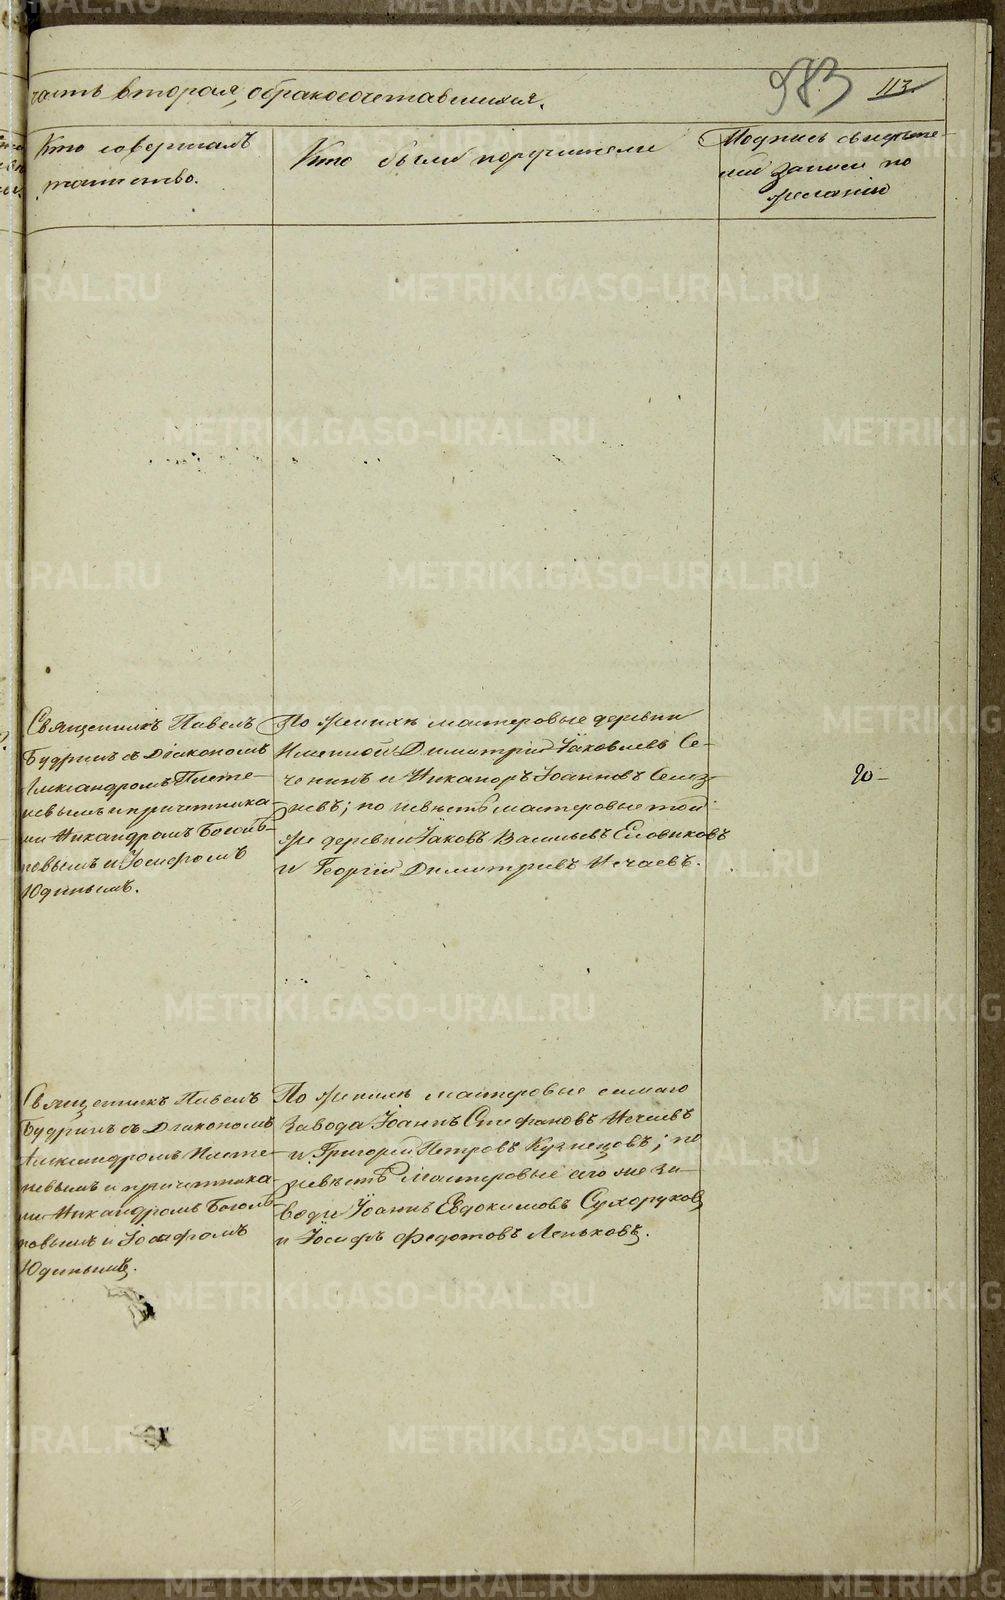 983 113
часть вторая, о бракосочетавшихся.
Кто совершалъ
таинство.
Кто были поручители
Подпись свидѣте-
лей записи по
желанію
Священникъ Павелъ
Будринъ съ Діакономъ
Александромъ
невымъ и причетника-
ми Никандромъ
повымъ и Іосифомъ
Юдинымъ.
По женихѣ мастеровые деревни
Именной Димитрій Іаковлевъ Се-
ченинъ и Никаноръ Іоанновъ Селез-
невъ; по невѣстѣ мастеровые той
же деревни Іаковъ Васильевъ Еловиковъ
и Георгій Димитріевъ Нечаевъ.
20-
Священникъ Павелъ
Будринъ съ Діакономъ
Александромъ
невымъ и причетника-
ми Никандромъ
повымъ и Іосифомъ
Юдинымъ.
По женихѣ мастеровые самаго
Завода Іоаннъ Стефановъ Нечаевъ
и Григорій Петровъ Кузнецовъ; по
невѣстѣ Мастеровые сего же за-
вода Іоаннъ Евдокимовъ Сухоруковъ
и Іосифъ Федотовъ Леньковъ.
METRIKI.GASO-URAL.RU